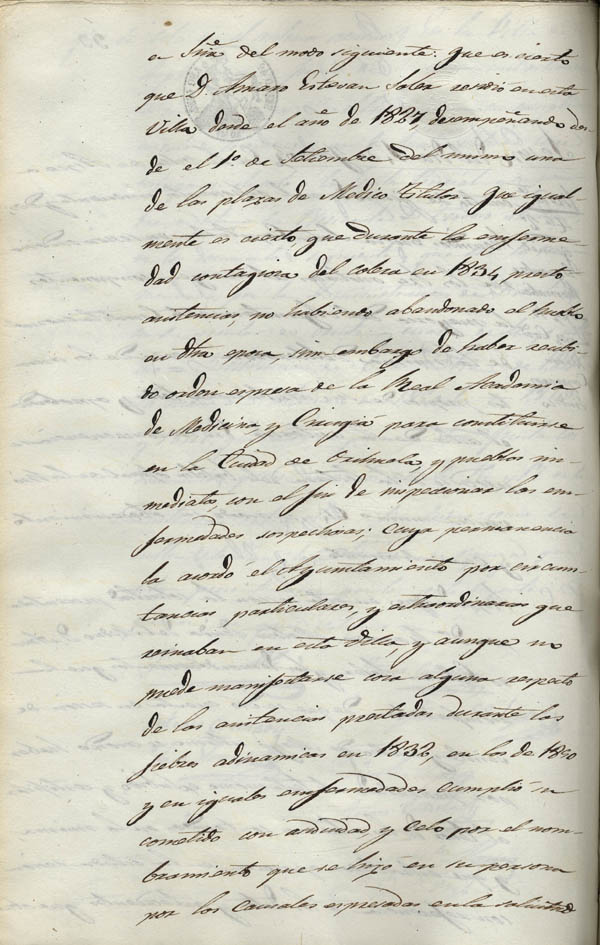 en Sria del modo siguiente: Que es cierto
que D. Amaro Estevan Soler residió en esta
Villa desde el año de 1827, desempeñando des-
de el 1º de Setiembre del mismo una
de las plazas de Medico titular. Que igual-
mente es cierto que durante la enferme-
dad contagiosa del colera en 1834 prestó
asistencias, no habiendo abandonado el Pueblo
en dha epoca, sin embargo de haber recibi-
do orden espresa de la Real Academia
de Medicina y Cirugía para constituirse
en la Ciudad de Orihuela y pueblos in-
mediatos, con el fin de inspeccionar las en-
fermedades sospechosas; cuya permanencia
la acordó el Ayuntamiento por circuns-
tancias particulares, y extraordinarias que
reinaban en esta Villa, y aunque no
puede manifestarse cosa alguna respecto
de las asistencias prestadas durante las
fiebres adinamicas en 1832, en las de 1840
y en iguales enfermedades cumplió su
cometido con asiduidad y celo por el nom-
bramiento que se hizo en su persona
por las causales espresadas en la solicitud